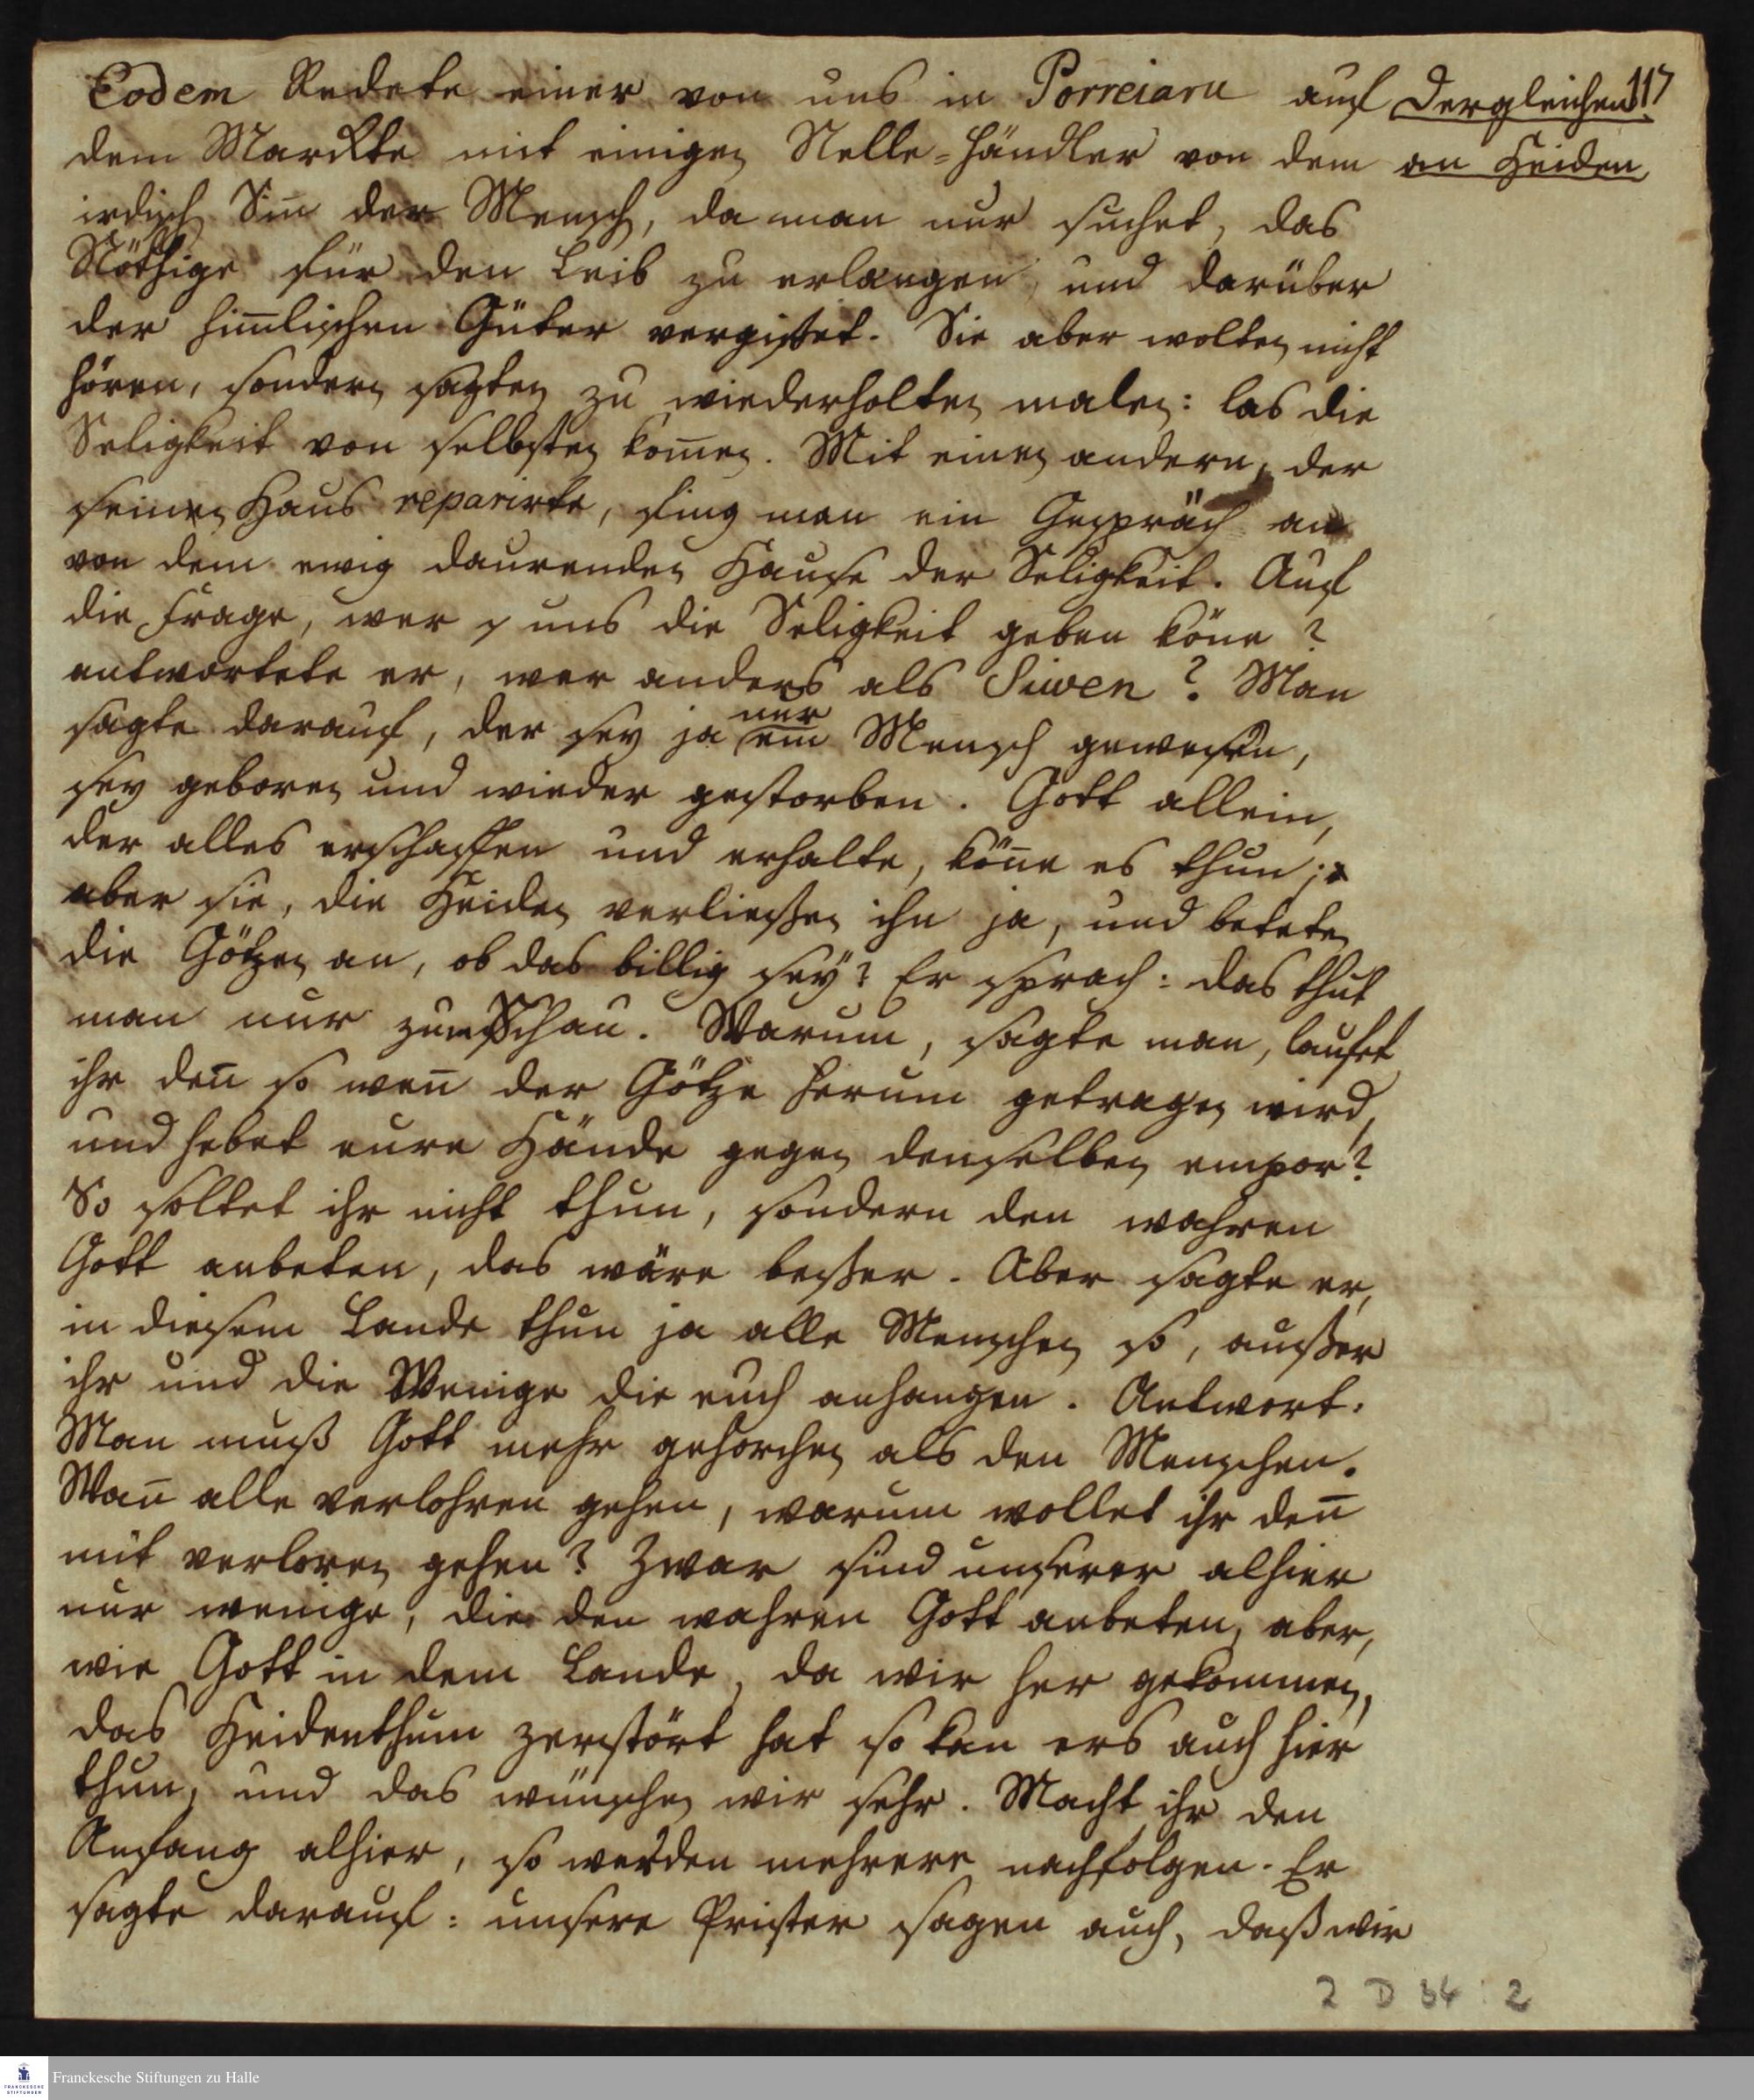 Eodem Redete einer von uns in Porreiaru auf
dem Marckte mit einigen Nelle-händler von dem
irdisch Siñ der Mensch, da man nur suchet, das
Nöthige für den Leib zu erlangen, und darüber
der himlischen Güter vergisset. Sie aber wolten nicht
hören, sondern sagten zu wiederholten malen: las die
Seligkeit von selbsten kom̄en. Mit einen andern, der
seinen Haus reparirte, fing man ein Gespräch an
von dem ewig daurenden Hause der Seligkeit. Auf
die Frage, wer uns die Seligkeit geben köne?
antwortete er, wer anders als Siwen? Man
sagte darauf, der sey ja nur ein Mensch gewesen,
sey geboren und wieder gestorben. Gott allein,
der alles erschaffen und erhalte, köñe es thun;
aber sie, die Heiden verliessen ihn ja, und beteten
die Götzen an, ob das billig seÿ? Er sprach: das thut
man nur zum Schau. Warum, sagte man, laufet
ihr deñ so weñ der Götze herum getragen wird,
und hebet eure Hände gegen denselben empor?
So soltet ihr nicht thun, sondern den wahren
Gott anbeten, das wäre besser. Aber sagte er,
in diesem Lande thun ja alle Menschen so, ausser
ihr und die Wenige die euch anhangen. Antwort.
Man muß Gott mehr gehorchen als den Menschen.
Wañ alle verlohren gehen, warum wollet ihr deñ
mit verloren gehen? Zwar sind unserer alhier
nur wenige, die den wahren Gott anbeten, aber,
wie Gott in dem Lande, da wir her gekommen,
das Heidenthum zerstört hat so kan ers auch hier
thun, und das wünschen wir sehr. Macht ihr den
Anfang alhier, so werden mehrere nachfolgen. Er
sagte darauf: unsere Prister sagen auch, daß wir
117
dergleichen
an Heiden
2 D 34 : 2
Franckesche Stiftungen zu Halle
FRANCKESCHE
STIFTUNGEN